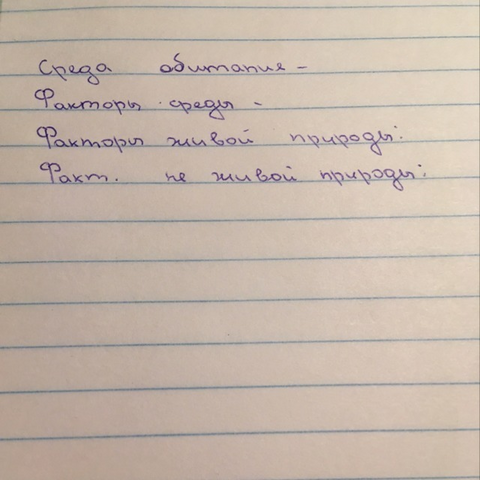 Среда обитания -
Факторы среды -
Факторы живой природы:
Факт. не живой природы: